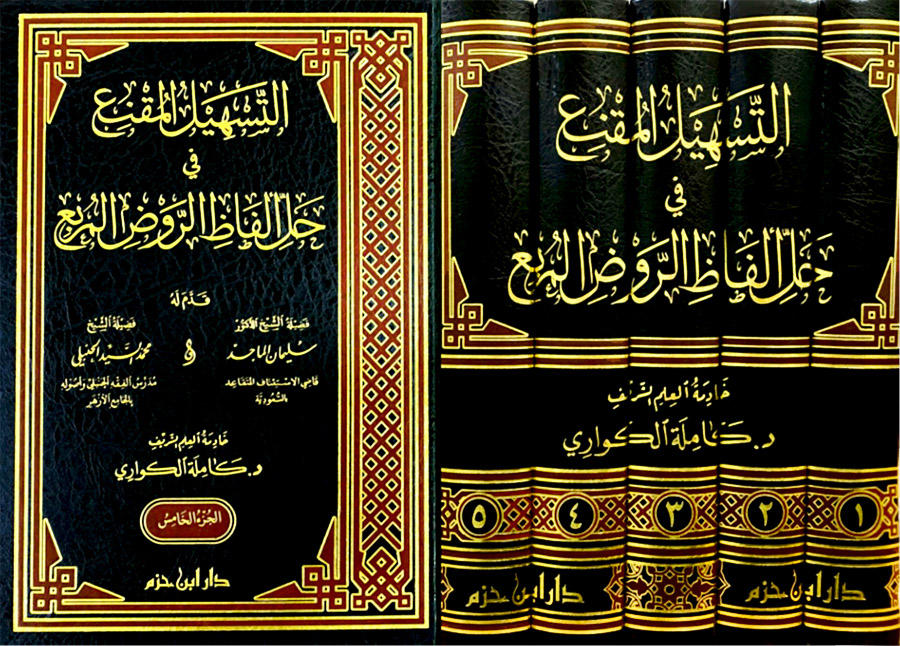 التَّسْهِيلُ المُقْنِع
في
حَلِّ ألفَاظِ الرَّوْضِ المُربِع
قَدَّمَ لَهُ
فَضِيلَةُ الشَّيْخِ الدُّكتُور
سليمان الماجد
قَاضِي الاسْتِئنَافِ المُتقَاعِد
بالسُّعُوديَّة
و
فَضِيلَةُ الشَّيْخ
محمد السيد الحنبلي
مُدَرِّسُ الفِقْهِ الحَنبَليِّ وَأصُولِهِ
بالجَامِعِ الأزْهَر
خَادِمَةُ العِلمِ الشَّرِيفِ
د. كَامِلَة الكواري
الجُزْءُ الخَامِسُ
دار ابن حزم
التَّسْهِيلُ المُقْنِع
في
حَلِّ ألفَاظِ الرَّوْضِ المُربِع
خَادِمَةُ العِلمِ الشَّرِيفِ
د. كَامِلَة الكواري
١ ٢ ٣ ٤ ٥
دار ابن حزم
دار ابن حزم